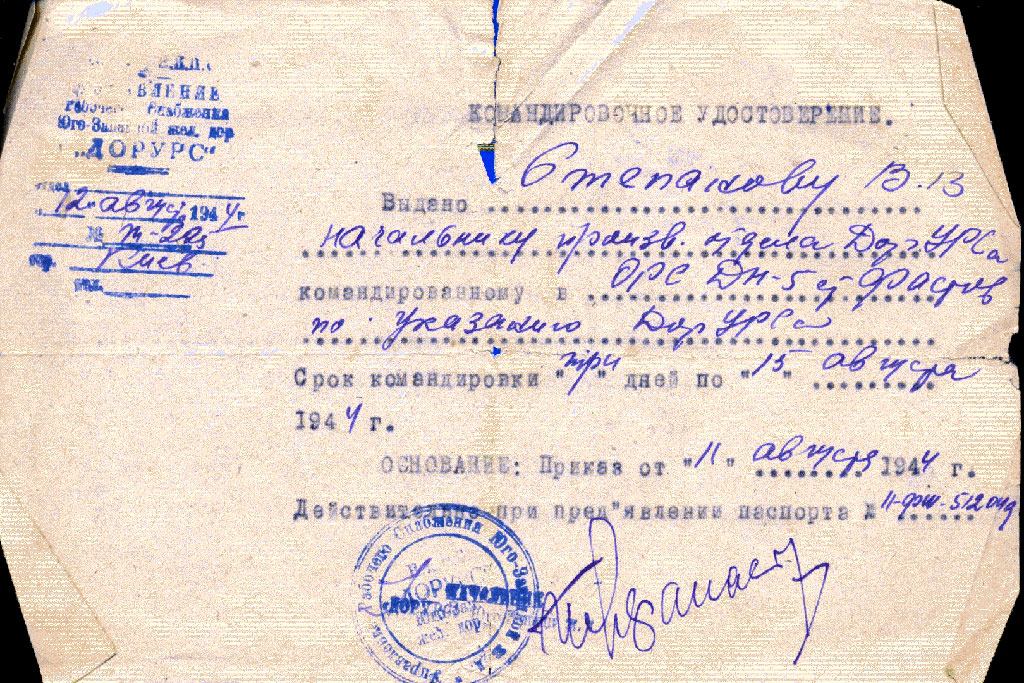 УПРАВЛЕНИЕ
Рабочего Снабжения
Юго-Западной жел. дор.
„ДОРУРС“
12 август 1944 г.
№
Киев
КОМАНДИРОВОЧНОЕ УДОСТОВЕРЕНИЕ.
Выдано Степанову В.
начальнику произв. отдела ДорУРСа
командированному в ОРС ДН-5 ст Фастов
по указанию ДорУРСа
Срок командировки "три" дней по "15" августа
1944 г.
ОСНОВАНИЕ: Приказ от "11" августа 1944 г.
Действительно при пред"явлении паспорта №
Управление Рабочего Снабжения Юго-Западной Ж.Д.
„ДОРУРС“
НАЧАЛЬНИК